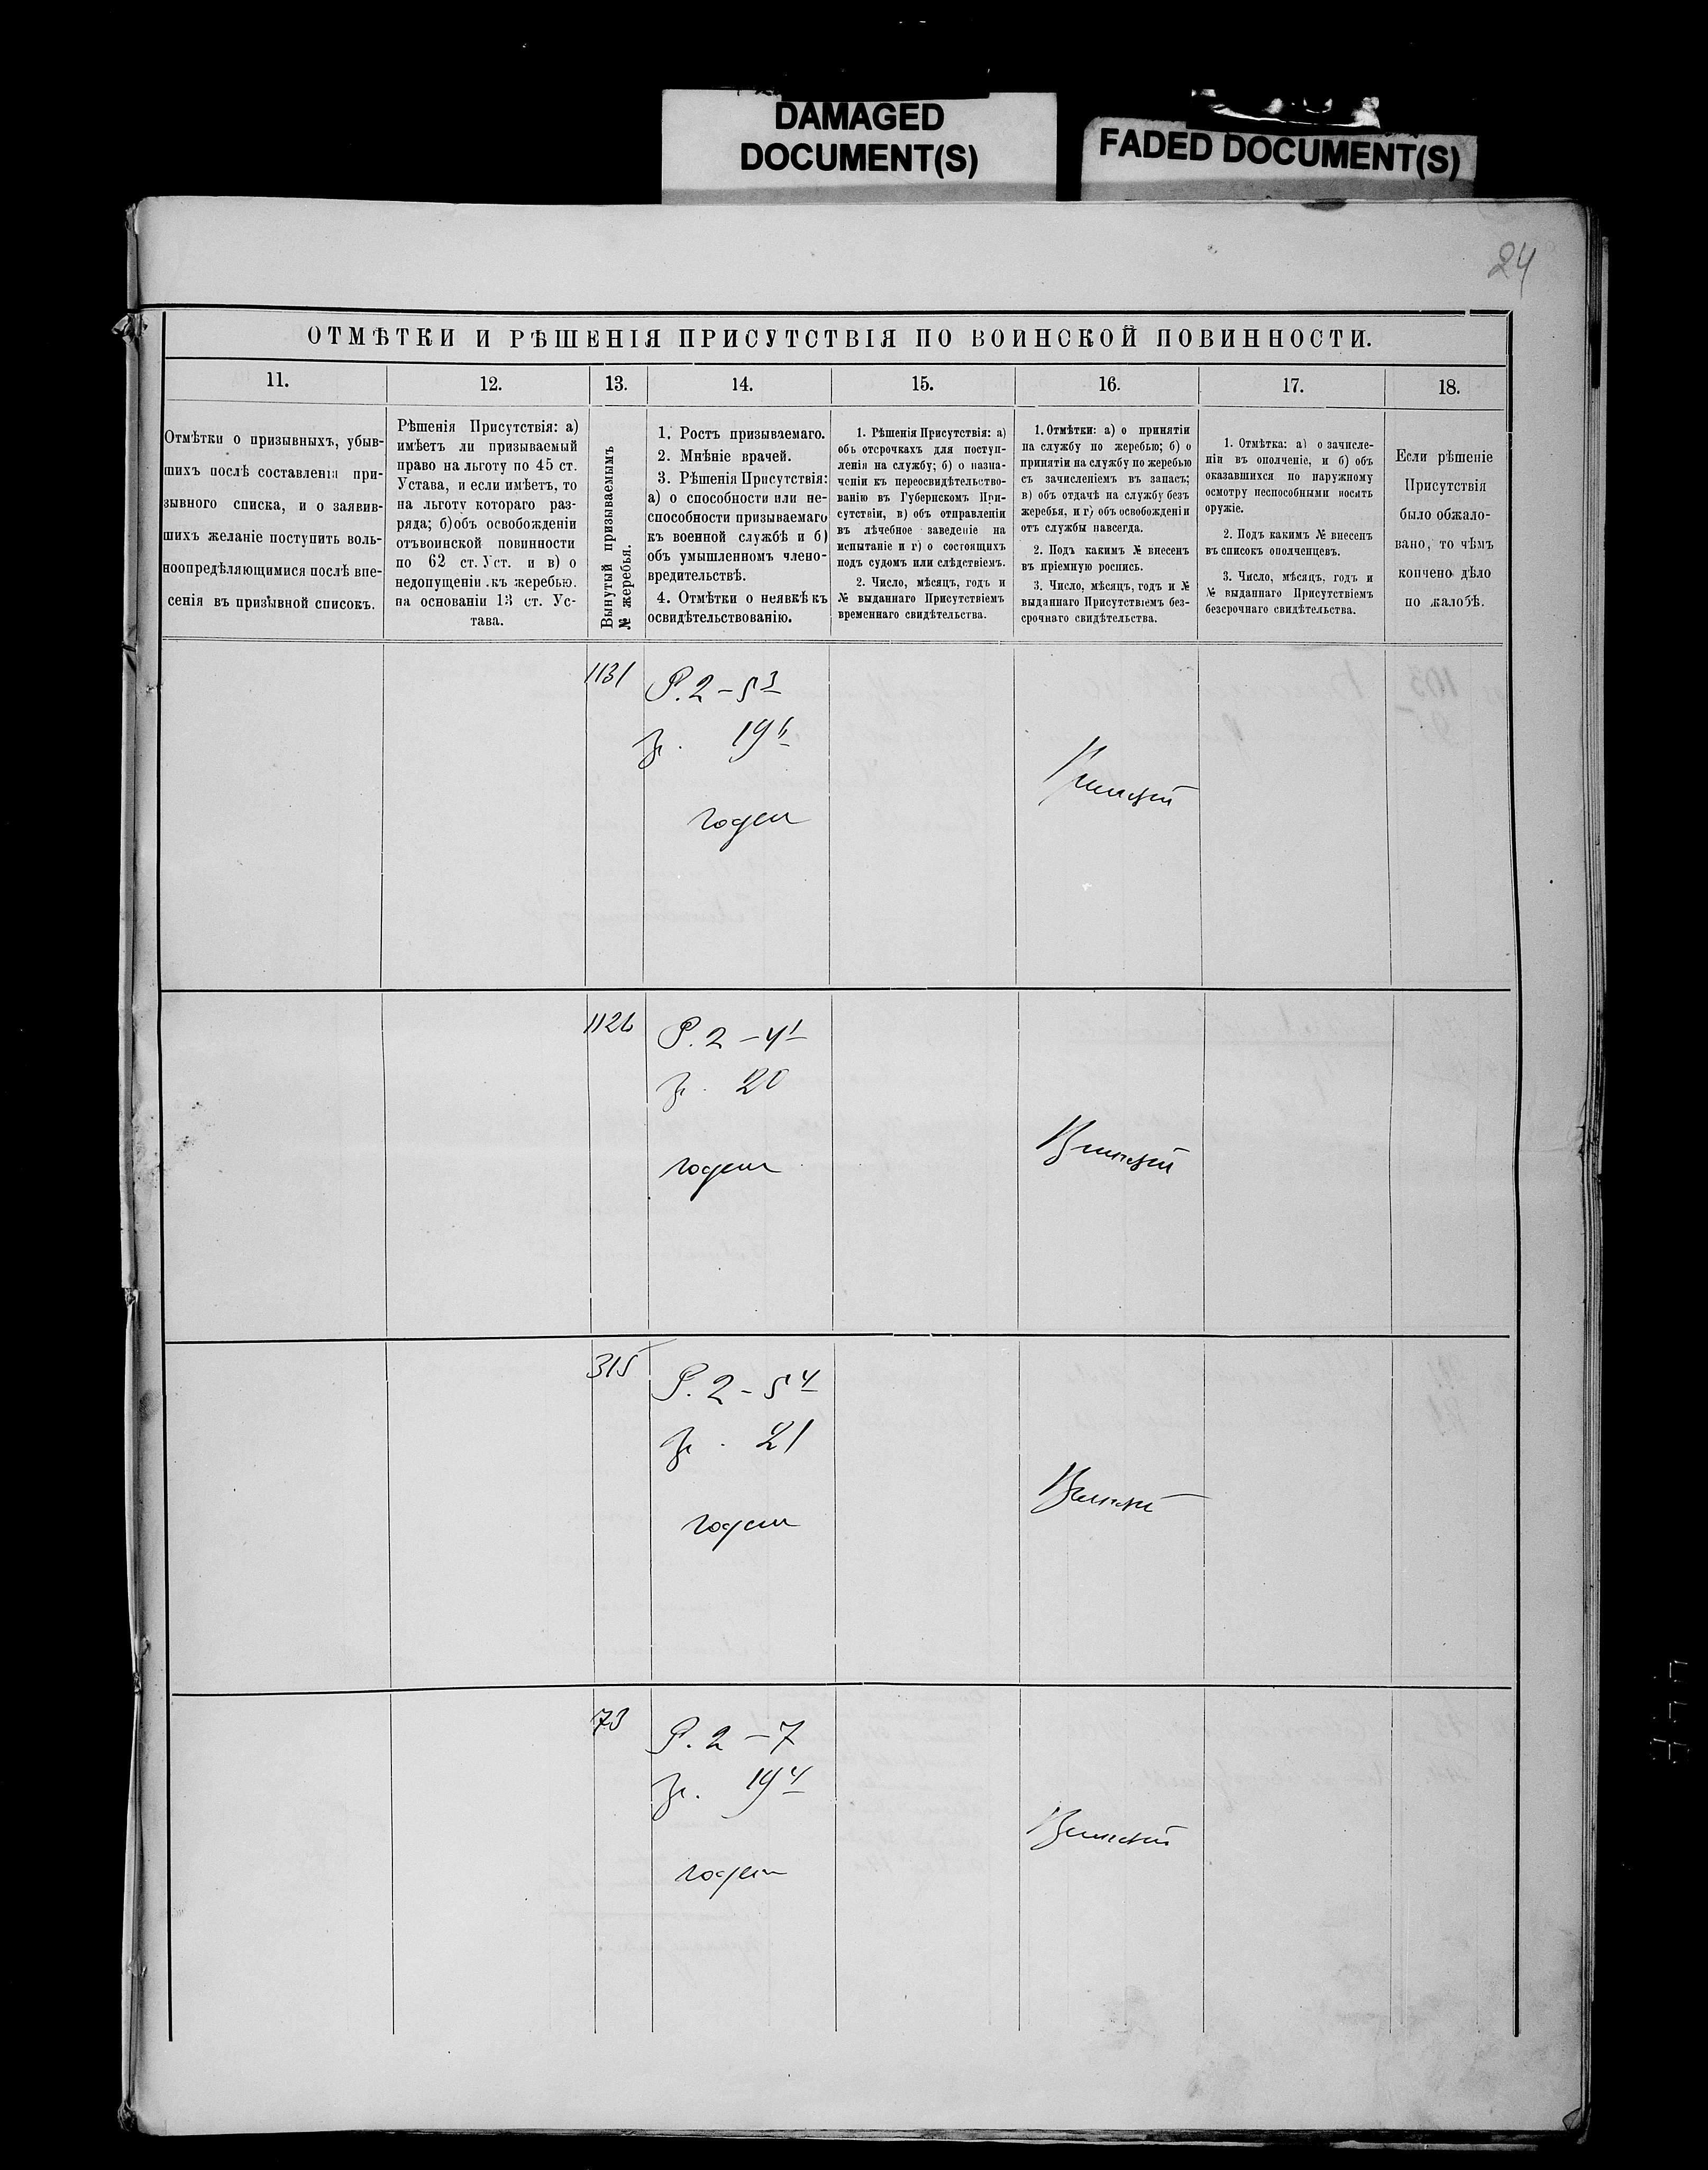 DAMAGED
DOCUMENT(S)
FADED DOCUMENT(S)
24
ОТМѢТКИ И РѢШЕНІЯ ПРИСУТСТВІЯ ПО ВОИНСКОЙ ПОВИННОСТИ.
11.
12.
13.
14.
15.
16.
17.
18.
Отмѣтки о призывныхъ, убыв-
шихъ послѣ составленія при-
зывного списка, и о заявив-
шихъ желаніе поступить воль-
ноопредѣляющимися послѣ вне-
сенія въ призывной списокъ.
Рѣшенія Присутствія: а)
имѣетъ ли призываемый
право на льготу по 45 ст.
Устава, и если имѣетъ, то
на льготу котораго раз-
ряда; б) объ освобожденіи
отъ воинской повинности
по 62 ст. Уст. и в) о
недопущеніи къ жеребью.
на основаніи 13 ст. Ус-
тава.
Вынутый призываемымъ
№ жеребья.
1. Ростъ призываемаго.
2. Мнѣніе врачей.
3. Рѣшенія Присутствія:
а) о способности или не-
способности призываемаго
къ военной службѣ и б)
объ умышленномъ члено-
вредительствѣ.
4. Отмѣтки о неявкѣ къ
освидѣтельствованію.
1. Рѣшенія Присутствія: а)
объ отсрочкахъ для поступ-
ленія на службу; б) о назна-
ченіи къ переосвидѣтельство-
ванію въ Губернскомъ При-
сутствіи, в) объ отправленіи
въ лѣчебное заведеніе на
испытаніе и г) о состоящихъ
подъ судомъ или слѣдствіемъ.
2. Число, мѣсяцъ, годъ и
№ выданнаго Присутствіемъ
временнаго свидѣтельства.
1. Отмѣтки: а) о принятіи
на службу по жеребью; б) о
принятіи на службу по жеребью
съ зачисленіемъ въ запасъ;
в) объ отдачѣ на службу безъ
жеребья, и г) объ освобожденіи
отъ службы навсегда.
2. Подъ какимъ № внесенъ
въ пріемную роспись.
3. Число, мѣсяцъ, годъ и №
выданнаго Присутствіемъ без-
срочнаго свидѣтельства.
1. Отмѣтка: а) о зачисле-
ніи въ ополченіе, и б) объ
оказавшихся по наружному
осмотру неспособными носить
оружіе.
2. Подъ какимъ № внесенъ
въ списокъ ополченцевъ.
3. Число, мѣсяцъ, годъ и
№ выданнаго Присутствіемъ
безсрочнаго свидѣтельства.
Если рѣшеніе
Присутствія
было обжало-
вано, то чѣмъ
кончено дѣло
по жалобѣ.
1131
Р. 2 – 5 3
годен
1126
Р. 2 – 4 1
г. 20
годен
315
Р. 2 – 5 4
г. 21
годен
73
Р. 2 – 7
г. 19 4
годен